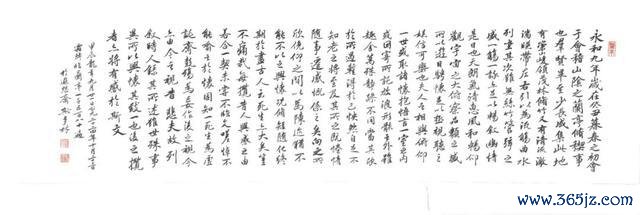 永和九年歲在癸丑暮春之初會
于會稽山陰之蘭亭脩稧事
也群賢畢至少長咸集此地
有崇山峻領茂林脩竹又有清流激
湍暎帶左右引以為流觴曲水
列坐其次雖無絲竹管弦之
盛一觴一詠亦足以暢敘幽情
是日也天朗氣清惠風和暢仰
觀宇宙之大俯察品類之盛
所以遊目騁懷足以極視聽之
娛信可樂也夫人之相與俯仰
一世或取諸懷抱悟言一室之內
或因寄所託放浪形骸之外雖
趣舍萬殊靜躁不同當其欣
於所遇暫得於己怏然自足不
知老之將至及其所之既惓情
隨事遷感慨係之矣向之所
欣俛仰之間以為陳迹猶不
能不以之興懷況脩短隨化終
期於盡古人云死生亦大矣豈
不痛哉每攬昔人興感之由
若合一契未嘗不臨文嗟悼不
能喻之於懷固知一死生為虛
誕齊彭殤為妄作後之視今
亦由今之視昔悲夫故列
敘時人錄其所述雖世殊事
異所以興懷其致一也後之攬
者亦將有感於斯文
甲辰龍年九月
www.365jz.com